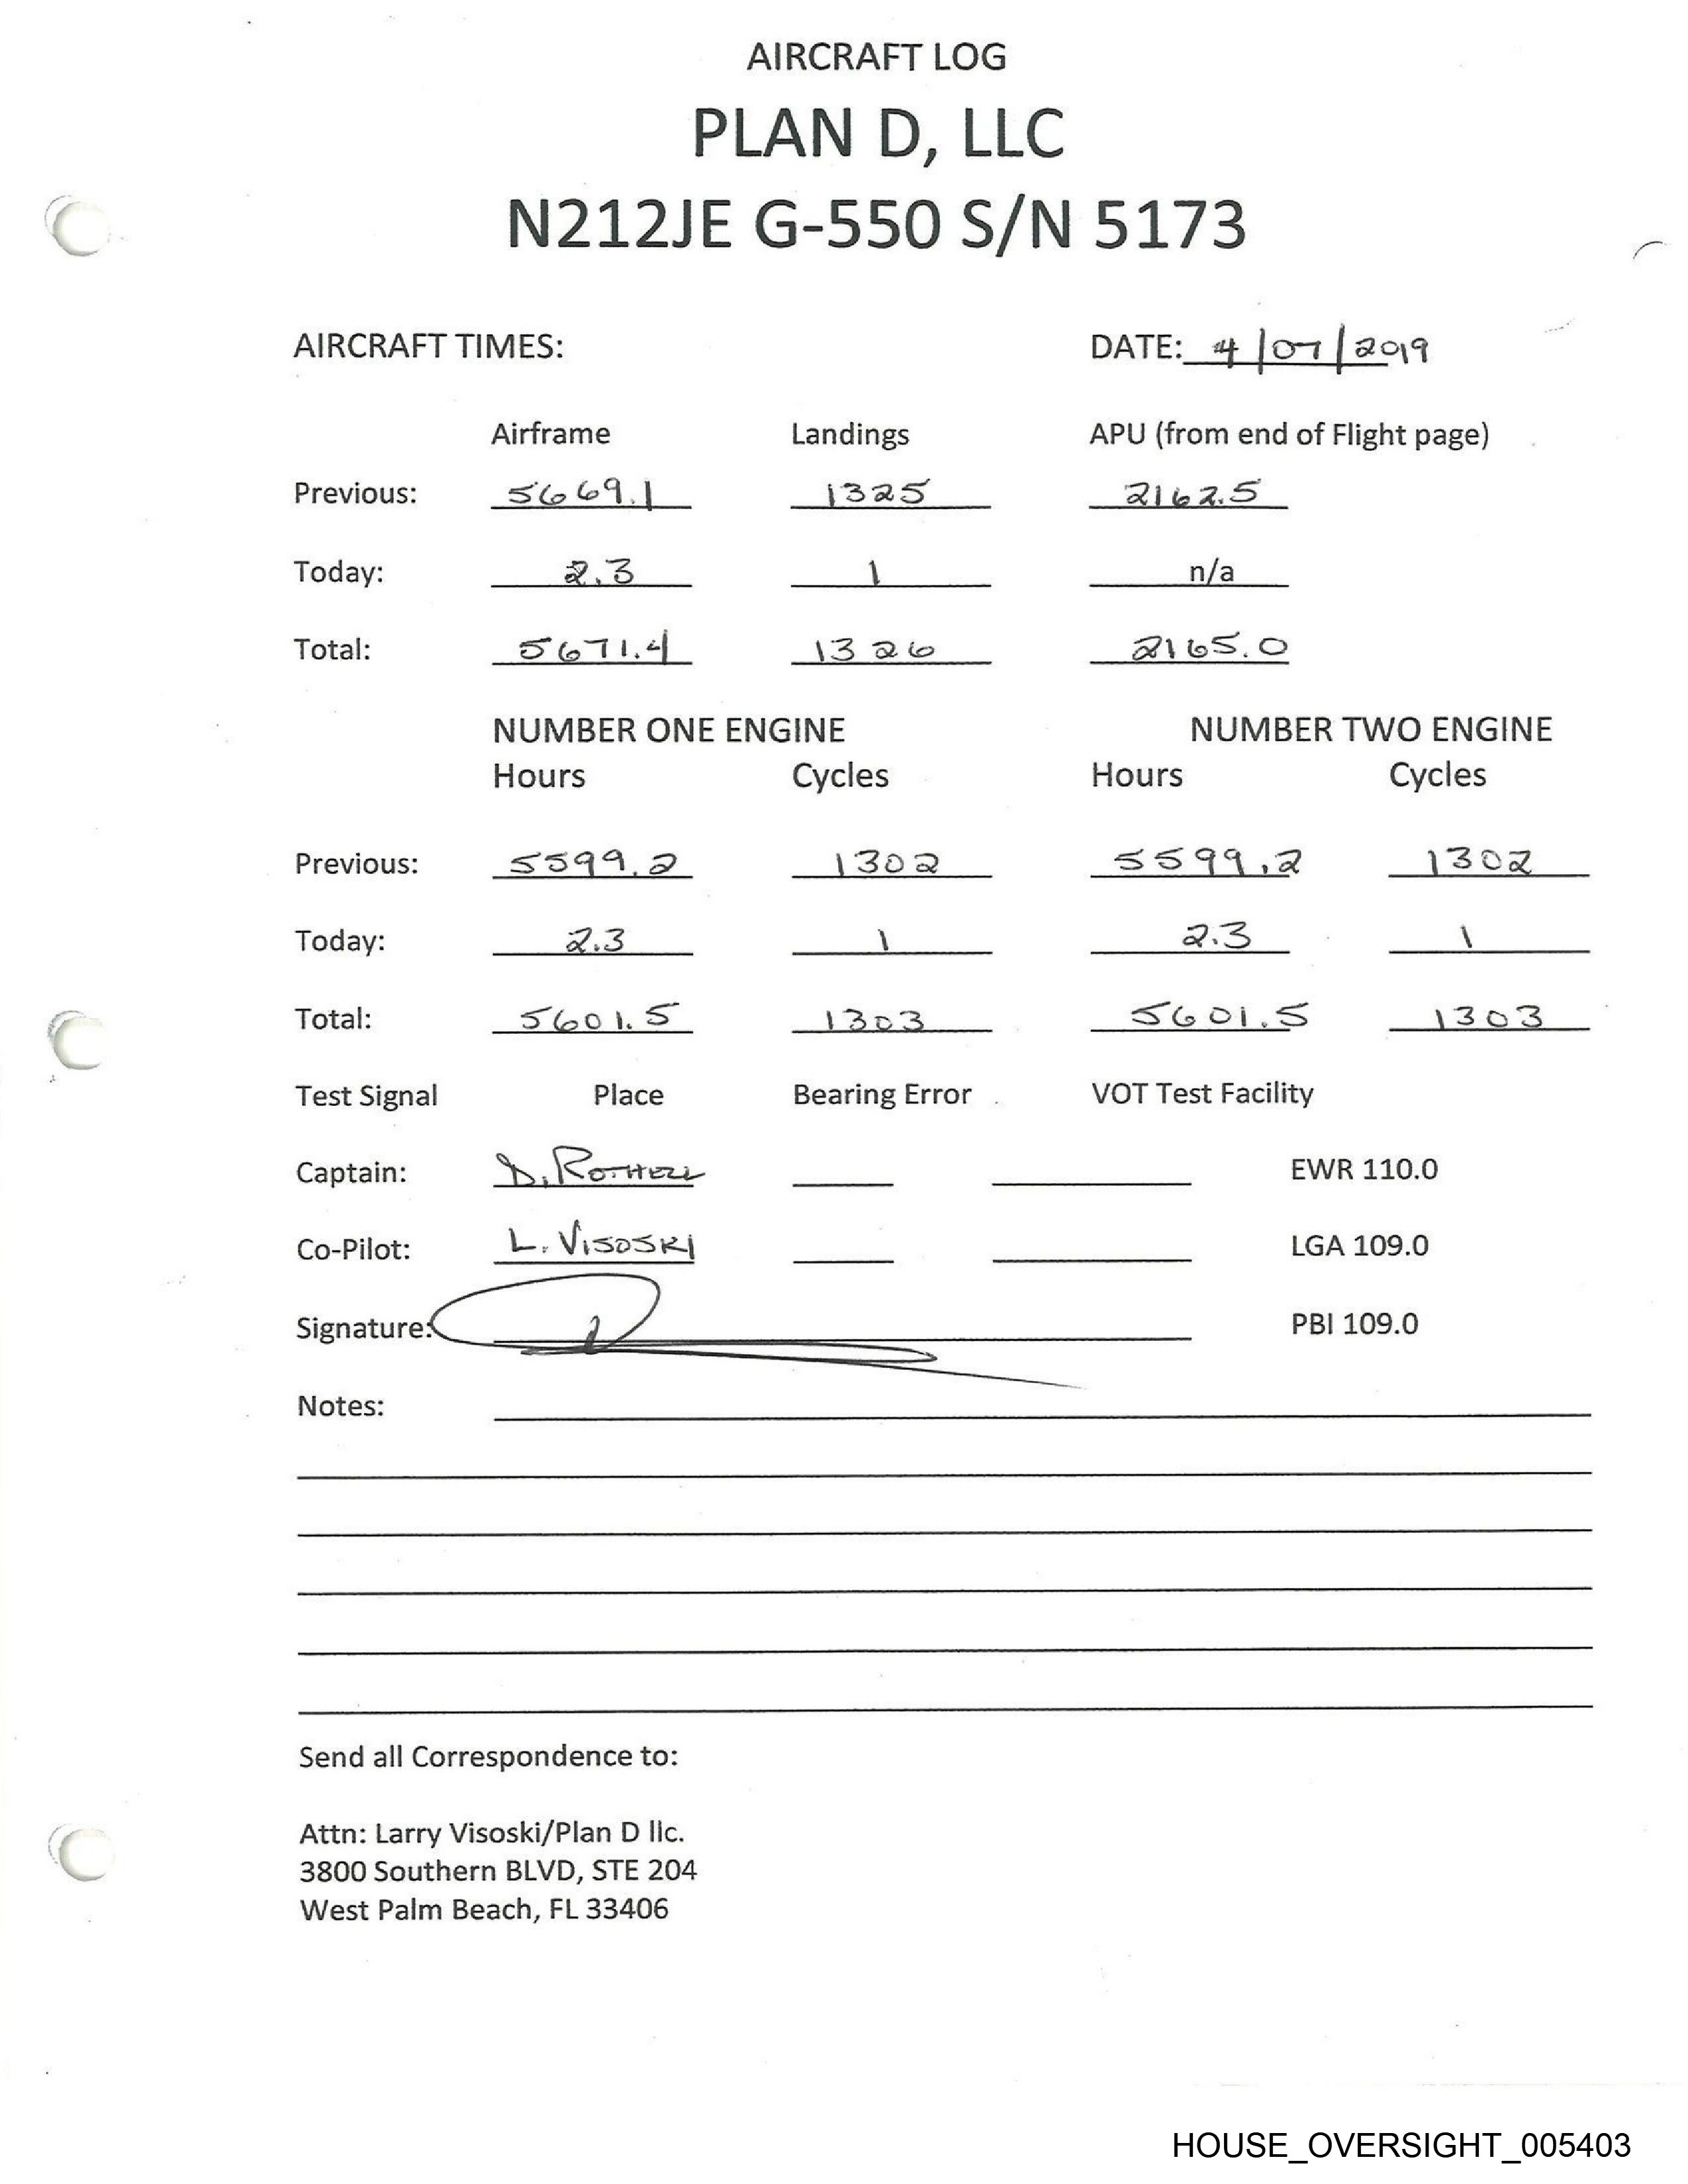 AIRCRAFT LOG
PLAN D, LLC
N212JE G-550 S/N 5173
AIRCRAFT TIMES: DATE: 4/07/2019
Airframe Landings APU (from end of Flight page)
Previous: 5669.1 1325 2162.5
Today: 2.3 1 n/a
Total: 5671.4 1326 2165.0
NUMBER ONE ENGINE NUMBER TWO ENGINE
Hours Cycles Hours Cycles
Previous: 5599.2 1302 5599.2 1302
Today: 2.3 1 2.3 1
Total: 5601.5 1303 5601.5 1303
Test Signal Place Bearing Error VOT Test Facility
Captain: D. Rothell EWR 110.0
Co-Pilot: L. VISOSKI LGA 109.0
Signature: PBI 109.0
Notes:
Send all Correspondence to:
Attn: Larry Visoski/Plan D llc.
3800 Southern BLVD, STE 204
West Palm Beach, FL 33406
HOUSE_OVERSIGHT_005403